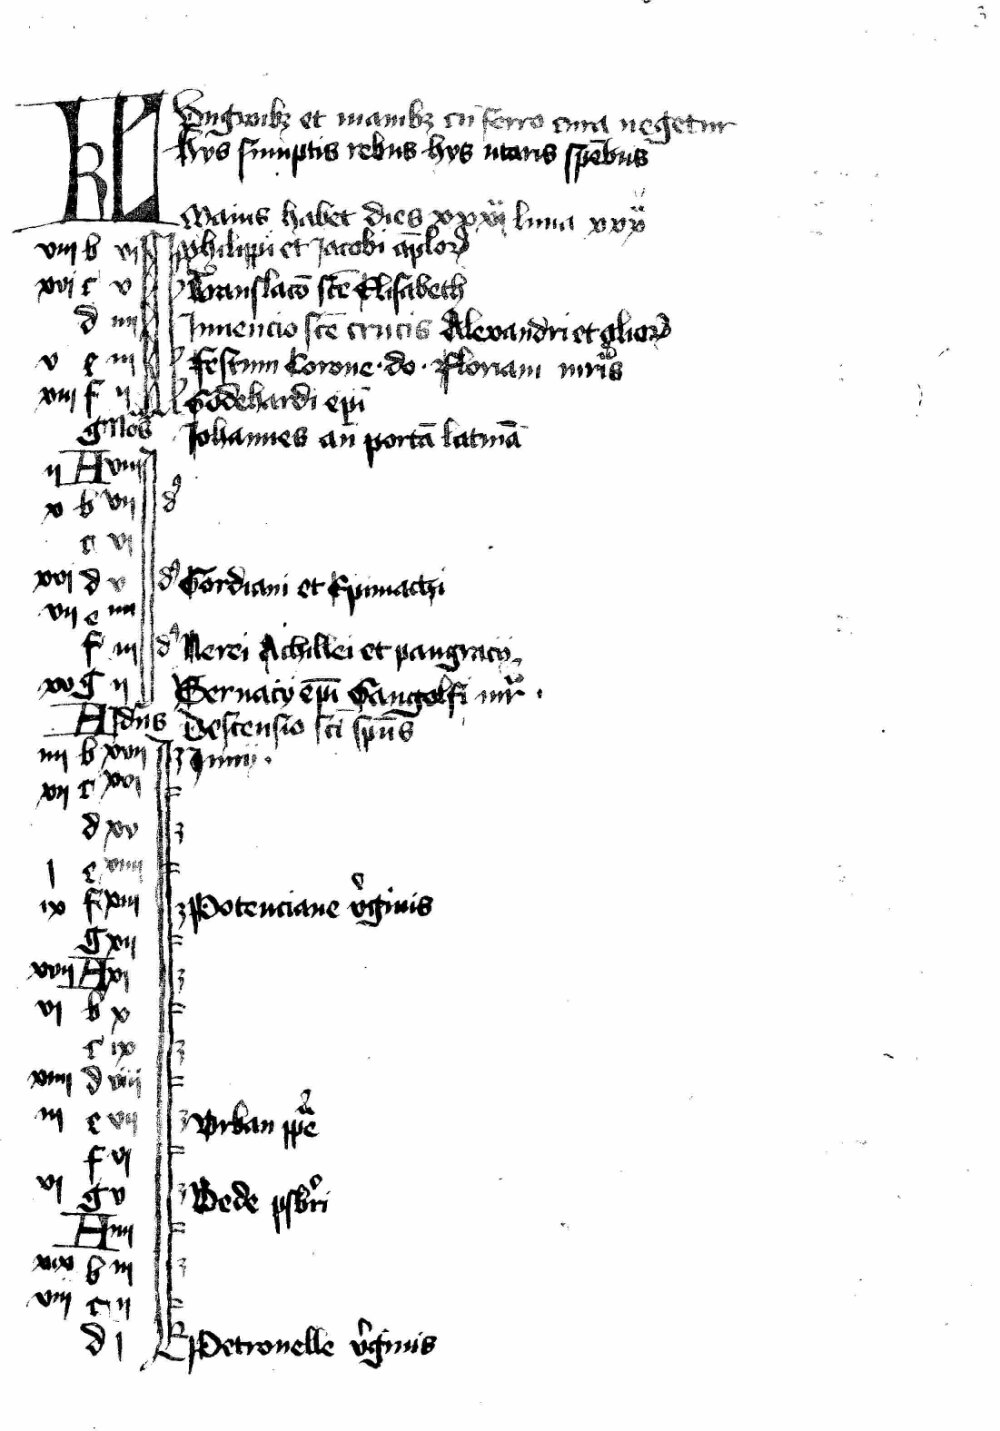 3
KL Ungwibꝫ et manibꝫ cū ferro cura negetur
Hys sumptis rebus hys utaris spēbus
Maius habet dies xxxi luna xxx
viii b vi Philippi et Jacobi aplorꝫ
xvi c v Translacō scē Elisabeth
d iiii Inuencio scē crucis Alexandri et
v e iii Festum Corone · do · Floriani mris
xiii f ii Godehardi epi
g Nōs Johannes an portā latinā
ii A viii
x b vii d
c vi
xvi d v d Gordiani et Epimachi
vii e iiii
f iii d Nerei Achillei et pangracij
xv g ii Seruacij epi Gangolfi mr ·
A Idus Descensio sci spūs
iiii b xvii Junij ·
xii c xvi
d xv
i e xiiii
ix f xiii Potenciane v̾ginis
g xii
xvii A xi
vi b x
c ix
xiiii d viii
iii e vii Vrban ppe
f vi
vi g v Bede psbri
A iiii
xix b iii
viii c ii
d i Petronelle v̾ginis